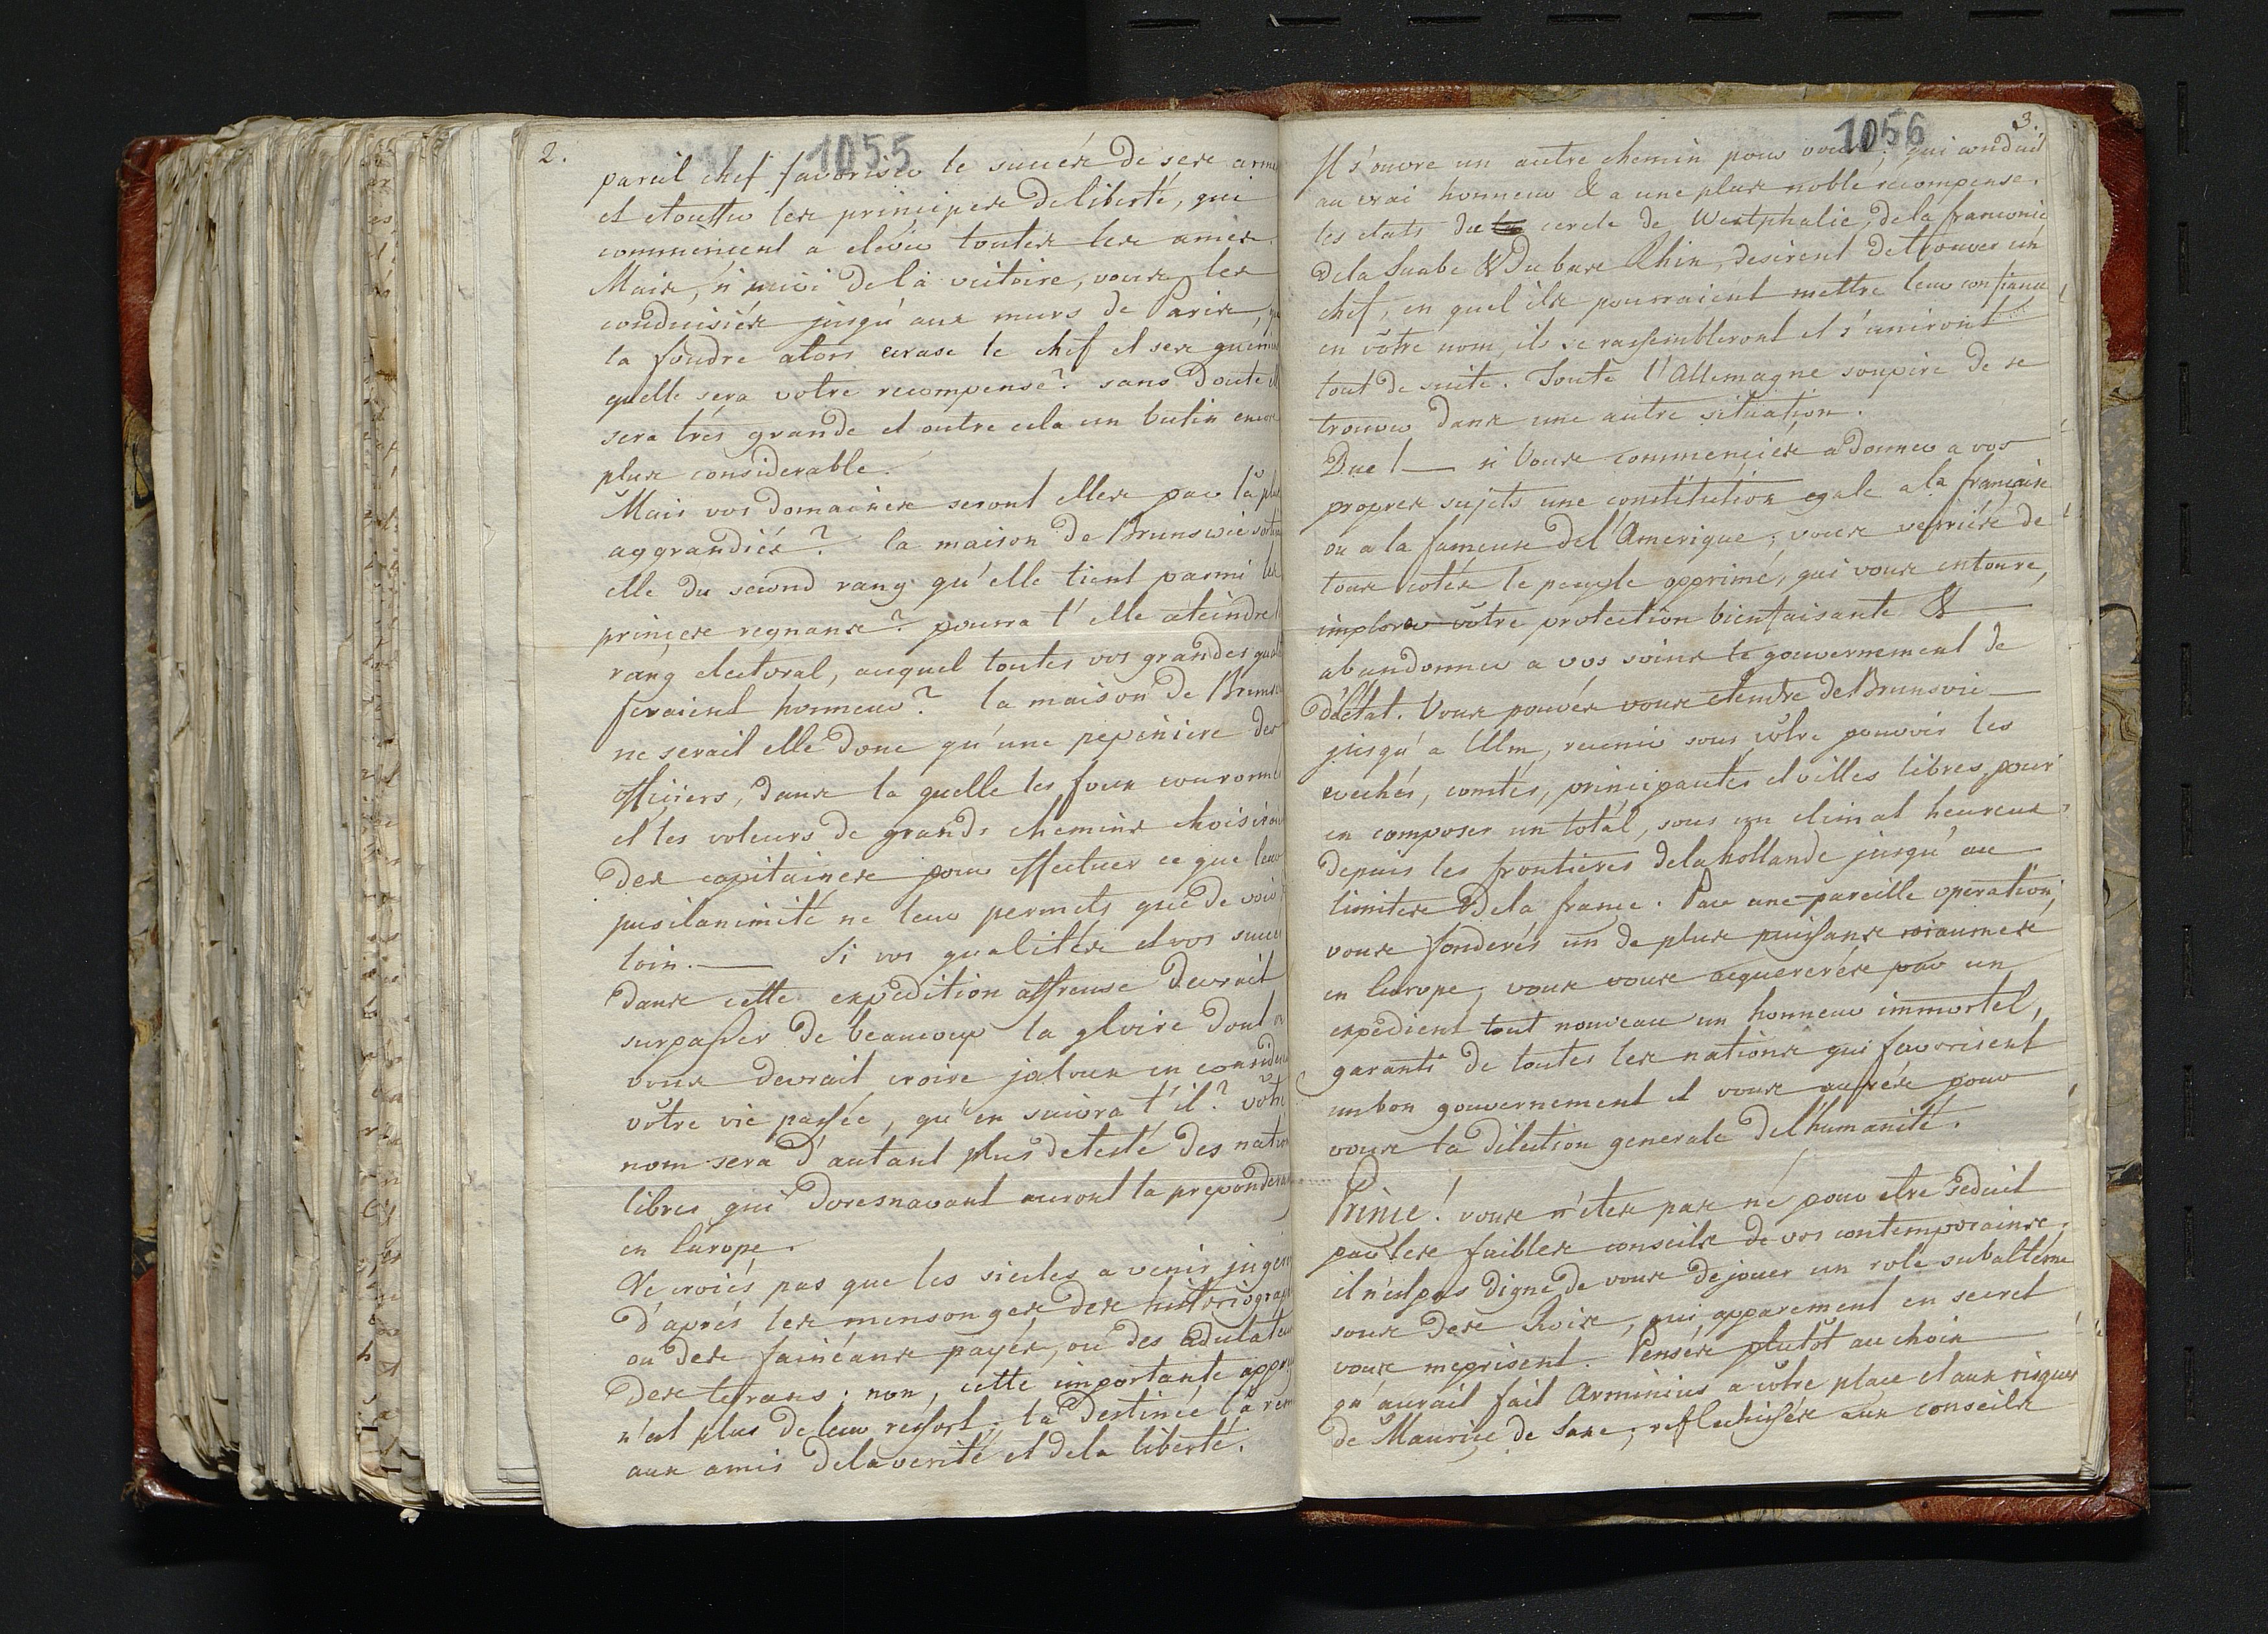 2.
1055
pareil chef favoriser le succés de ses arme
et etouffer les principes de liberté, qui
commencent a elever toutes les ames.
Mais, si suivi de la victoire, vous les
conduisiés jusqu'aux murs de Paris,
la foudre alors ecrase le chef et ses guerrie
quelle sera votre recompense? sans doute
sera trés grande et outre cela un butin encore
plus considerable.
Mais vos domaines seront elles par la plus
aggrandiés? la maison de Brunsvic
elle du second rang qu'elle tient parmi les
princes regnans? pourra t'elle ateindre
rang electoral, auquel toutes vos grandes qual
feraient honneur? la maison de Brunsv
ne serait elle donc qu'une pepiniere des
officiers, dans la quelle les foux couronnés
et les voleurs de grands chemins choisiron
des capitaines pour effectuer ce que leur
pusilanimité ne leur permets que de voir
loin. — Si vos qualités et vos succes
dans cette expedition affreuse devrait
surpasser de beaucoup la gloire dont
vous devrait croire jaloux en considera
vôtre vie passée, qu'en suivra t'il? vôtre
nom sera d'autant plus detesté des nation
libres qui doresnavant auront la preponderan
en Europe.
Ne croiés pas que les siecles a venir jugen
d'aprés les mensonges des historiograph
ou des fainéans payés, ou des adulateur
des tyrans; non, cette importante
n'est plus de leur ressort; la destinée l'a
aux amis de la verité et de la liberté.
1056
3.
Il s'ouvre un autre chemin pour vous; qui conduit
au vrai honneur & a une plus noble recompense.
les etats du cercle de Westphalie, de la franconie
de la Suabe & du bas Rhin, desirent de trouver un
chef, en quel ils pourraient mettre leur confiance
en vôtre nom, ils se rassembleront et s'uniront
tout de suite. Toute l'Allemagne soupire de se
trouver dans une autre situation.
Duc! — si Vous commenciés a donner a vos
propres sujets une constitution egale a la francaise
ou a la fameuse de l'Amerique; vous verriés de
tous cotés le peuple opprimé, qui vous entoure,
implorer vôtre protection bienfaisante &
abandonner a vos soins le gouvernement de
d'Etat. Vous pouvés vous etendre de Brunsvic
jusqu'a Ulm, reunir sous vôtre pouvoir les
evechés, comtés, principautés et villes libres, pour
en composer un total, sous un climat heureux
depuis les frontieres de la hollande jusqu'au
limites de la france. Par une pareille operation,
vous fonderés un de plus puissans roiaumes
en Europe; vous vous acquererés par un
expedient tout nouveau un honneur immortel,
garanti de toutes les nations qui favorisent
un bon gouvernement et vous aurés pour
vous la dilection generale de l'humanité.
Prince! vous n'étes pas né pour etre seduit
par les faibles conseils de vos contemporains.
il n'est pas digne de vous de jouer un rolé subalterne
sous des Rois, qui, apparement en secret
vous meprisent. Pensés plutôt au choix
qu'aurait fait Arminius a vôtre place et aux risques
de Maurice de Saxe; reflechissés aux conseils